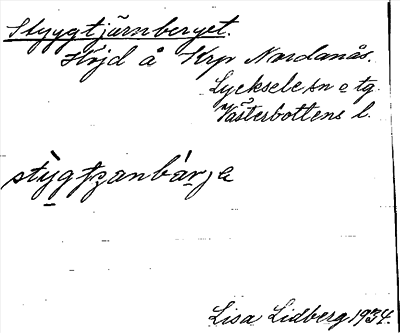 Styggtjärnberget.
Höjd å Krp Nordanås.
Lycksele sn o tg.
Västerbottens l.
stỳgtʒanbárja
Lisa Lidberg 1934.